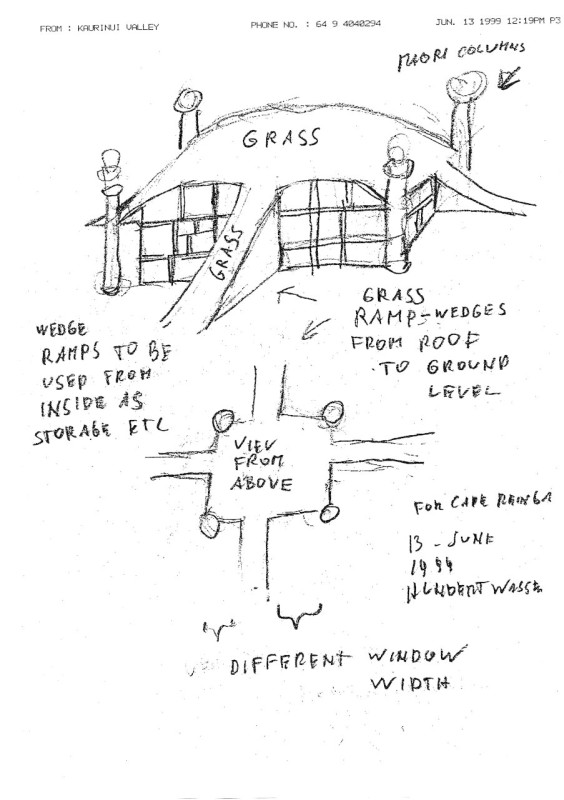 FROM : KAURINUI VALLEY
PHONE NO. : 64 9 4040294
JUN. 13 1999 12:19PM P3
MAORI COLUMNS
GRASS
GRASS
GRASS
RAMP-WEDGES
FROM ROOF
TO GROUND
LEVEL
WEDGE
RAMPS TO BE
USED FROM
INSIDE AS
STORAGE ETC
VIEW
FROM
ABOVE
FOR CAPE REINGA
13 - JUNE
1999
HUNDERTWASSER
DIFFERENT WINDOW
WIDTH